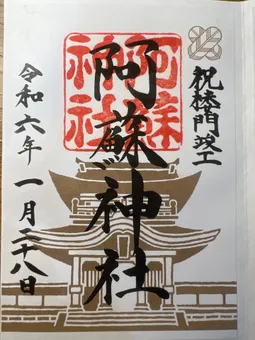 祝楼門竣工
阿蘇神社
阿蘇神社
令和六年 一月二十八日